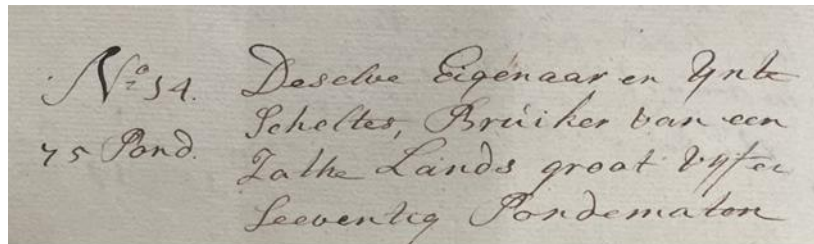 No 54. Deselve Eigenaar en Ynte
Scheltes, Brúiker van een
75 Pond. Zathe Lands groot Vyf en
Seeventig Pondematen